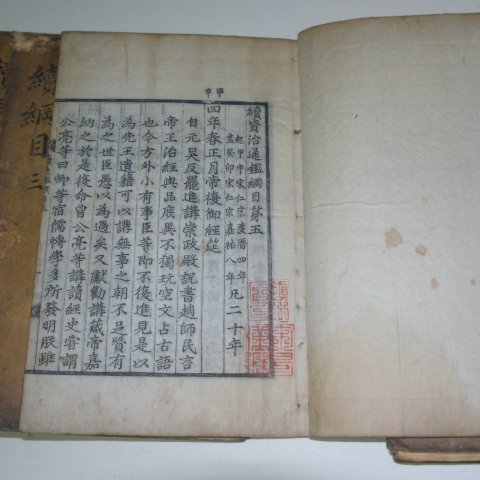 續資治通鑑綱目第五
起甲申宋仁宗慶曆四年
盡癸卯宋仁宗嘉祐八年
凡二十年
甲申
四年春正月帝復御經筵
自元昊反罷進講崇政殿說書趙師民言
帝王治經與品庶異不獨玩空文占古語
也今方外小有事臣等即不復進見是以
為先王遺籍可以講無事之朝不足贊有
為之世臣愚以為過矣又獻勸講箴帝嘉
納之於是復命曾公亮等講讀經史嘗謂
公亮等曰卿等宿儒博學多所發明朕雖
續綱目 三